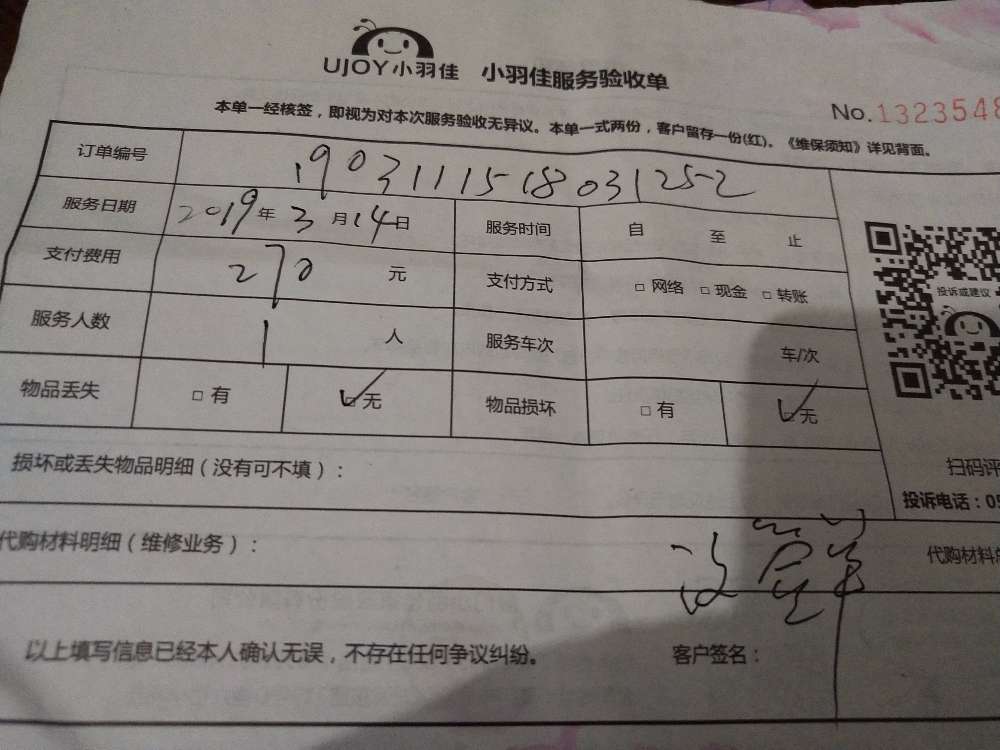 UJOY小羽佳 小羽佳服务验收单
No.1323548
本单一经核签，即视为对本次服务验收无异议。本单一式两份，客户留存一份(红)。《维保须知》详见背面。
订单编号 190311151803１252
服务日期 2019年3月14日 服务时间 自 至 止
支付费用 270 元 支付方式 □网络 □现金 □转账
投诉或建议
服务人数 1 人 服务车次 车/次
物品丢失 □有 ☑无 物品损坏 □有 ☑无
损坏或丢失物品明细（没有可不填）：
扫码评
投诉电话：05
代购材料明细（维修业务）：
代购材料总
以上填写信息已经本人确认无误，不存在任何争议纠纷。 客户签名：